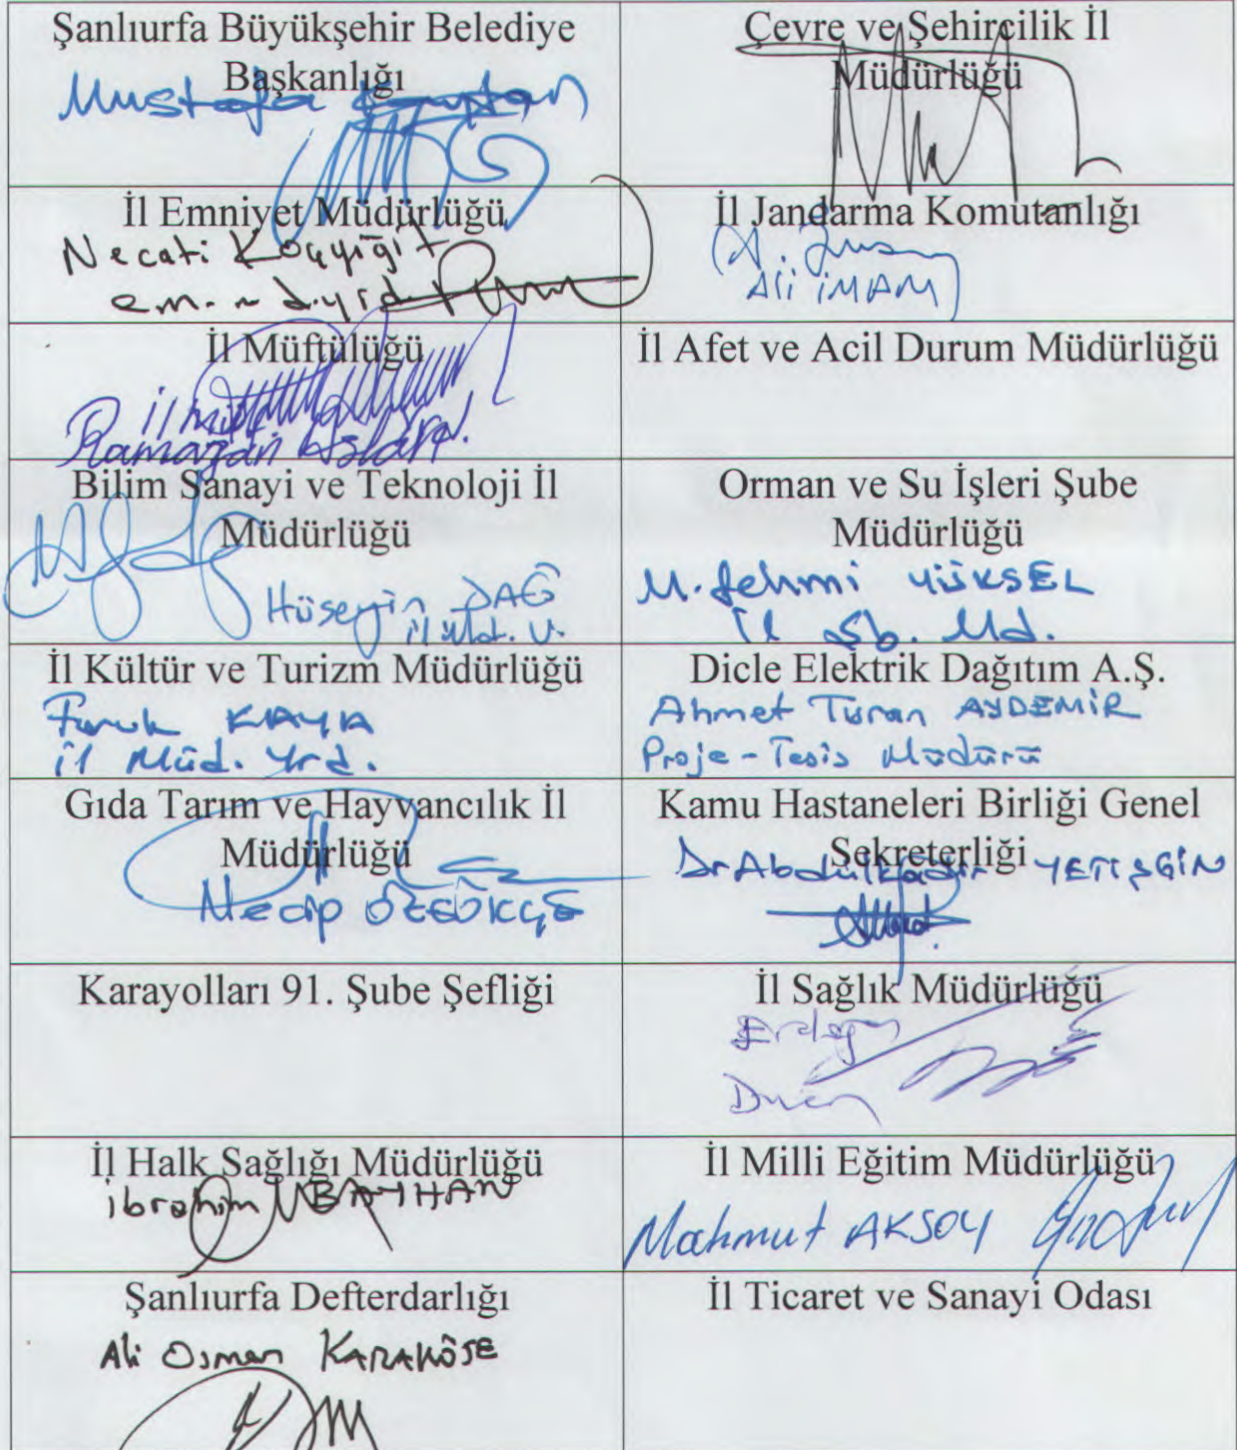 Şanlıurfa Büyükşehir Belediye
Başkanlığı
Mustafa
Çevre ve Şehircilik İl
Müdürlüğü
İl Emniyet Müdürlüğü
Necati Koçyiğit
İl Jandarma Komutanlığı
Ali İMAM
İl Müftülüğü
Ramazan Aslan
İl Afet ve Acil Durum Müdürlüğü
Bilim Sanayi ve Teknoloji İl
Müdürlüğü
Hüseyin DAĞ
il Md. V.
Orman ve Su İşleri Şube
Müdürlüğü
M. Fehmi YÜKSEL
İl Şb. Md.
İl Kültür ve Turizm Müdürlüğü
Faruk KAYA
il Müd. Yrd.
Dicle Elektrik Dağıtım A.Ş.
Ahmet Turan AYDEMİR
Proje-Tesis Müdürü
Gıda Tarım ve Hayvancılık İl
Müdürlüğü
Necip ÖZGÖKÇE
Kamu Hastaneleri Birliği Genel
Sekreterliği
Dr Abdülkadir YETİŞGİN
Karayolları 91. Şube Şefliği
İl Sağlık Müdürlüğü
İl Halk Sağlığı Müdürlüğü
İbrahim BAYHAN
İl Milli Eğitim Müdürlüğü
Mahmut AKSOY
Şanlıurfa Defterdarlığı
Ali Osman KARAKÖSE
İl Ticaret ve Sanayi Odası